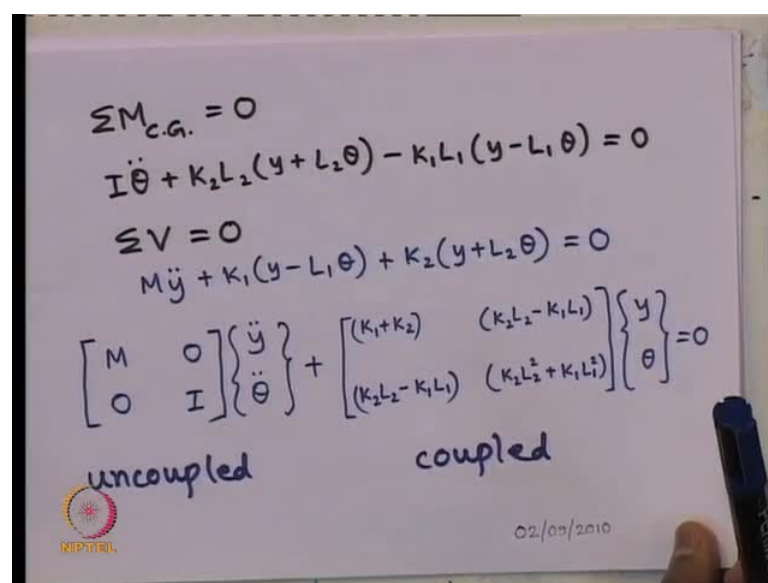 ΣM_C.G. = 0
Iθ̈ + K₂L₂(y + L₂θ) − K₁L₁(y − L₁θ) = 0
ΣV = 0
Mÿ + K₁(y − L₁θ) + K₂(y + L₂θ) = 0
[M 0; 0 I]{ÿ; θ̈} + [(K₁+K₂) (K₂L₂−K₁L₁); (K₂L₂−K₁L₁) (K₂L₂²+K₁L₁²)]{y; θ} = 0
uncoupled coupled
NPTEL
02/09/2010